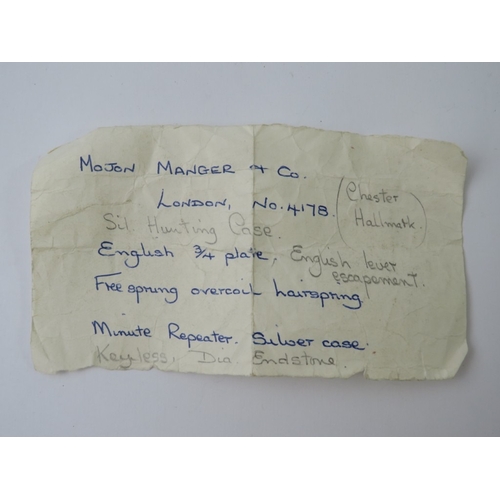 MOJON MANGER & Co.
LONDON, No. 4178. (Chester
Hallmark.)
Sil. Hunting Case.
English 3/4 plate, English lever
escapement.
Free sprung overcoil hairspring.
Minute Repeater. Silver case.
Keyless, Dia. Endstone.